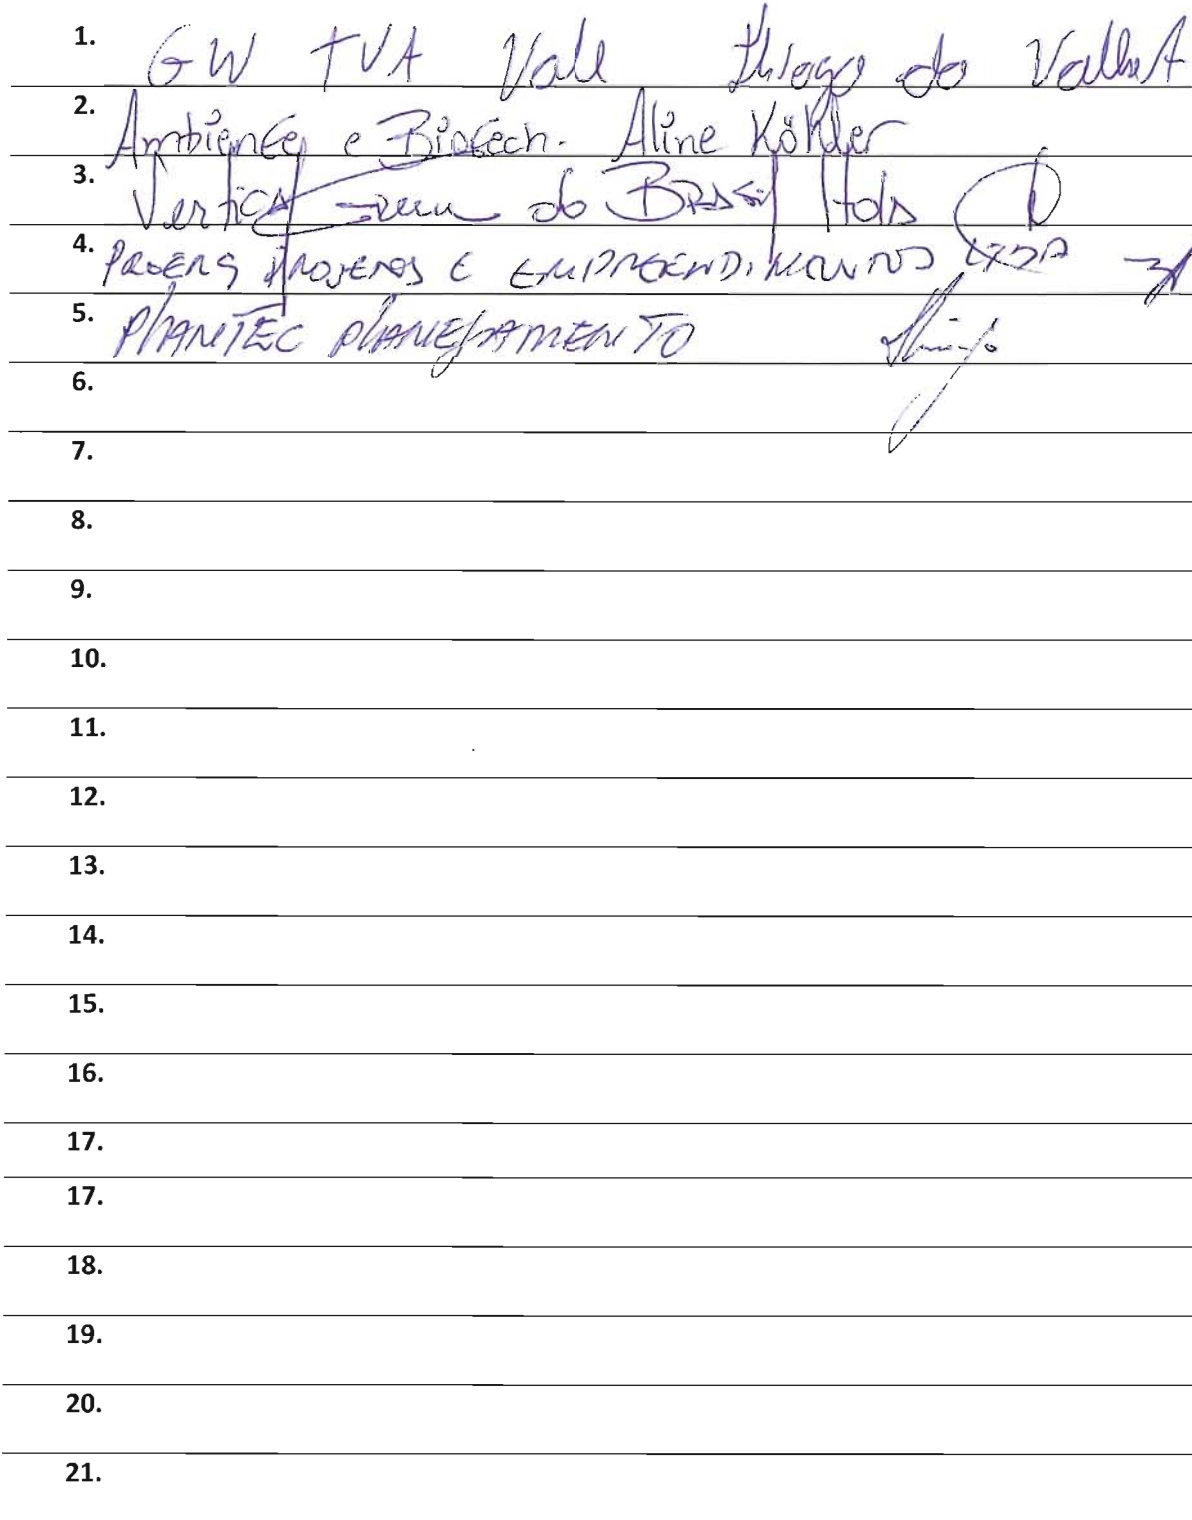 1. GW TVA Vale Thiago do Valle
2. Ambiente e Biotech. Aline Köhler
3. Vertical do BRASIL ltda
4. PROJETOS E EMPREENDIMENTOS LTDA
5. PLANTEC PLANEJAMENTO
6.
7.
8.
9.
10.
11.
12.
13.
14.
15.
16.
17.
17.
18.
19.
20.
21.